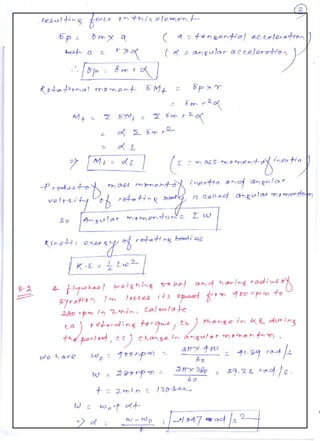 ②
resulting force on this element
δp = δm × a ( a = tangential acceleration)
but a = r × α ( α = angular acceleration )
∴ δp = δm r α
Rotational moment δMt = δp × r
= δm r² α
Mt = Σ δMt = Σ δm r² α
= α Σ δm r²
= α I
⇒ Mt = αI ( I = mass moment of inertia )
Product of mass moment of inertia and angular
velocity of rotating body is called angular momentum
So Angular momentum = I ω
Kinetic energy of rotating bodies
K.E = 1/2 I ω²
A flywheel weighing and having radius of
gyration 1m losses its speed from 400 rpm to
280 rpm in 2min. Calculate
(a) retarding torque, (b) change in K.E during
the period, (c) change in angular momentum.
we have ω₀ = 400 rpm = 2π × 400 / 60 = 41.89 rad/s
ω = 280 rpm = 2π × 280 / 60 = 29.32 rad/s.
t = 2min = 120 sec
ω = ω₀ + αt
⇒ α = ω - ω₀ / t